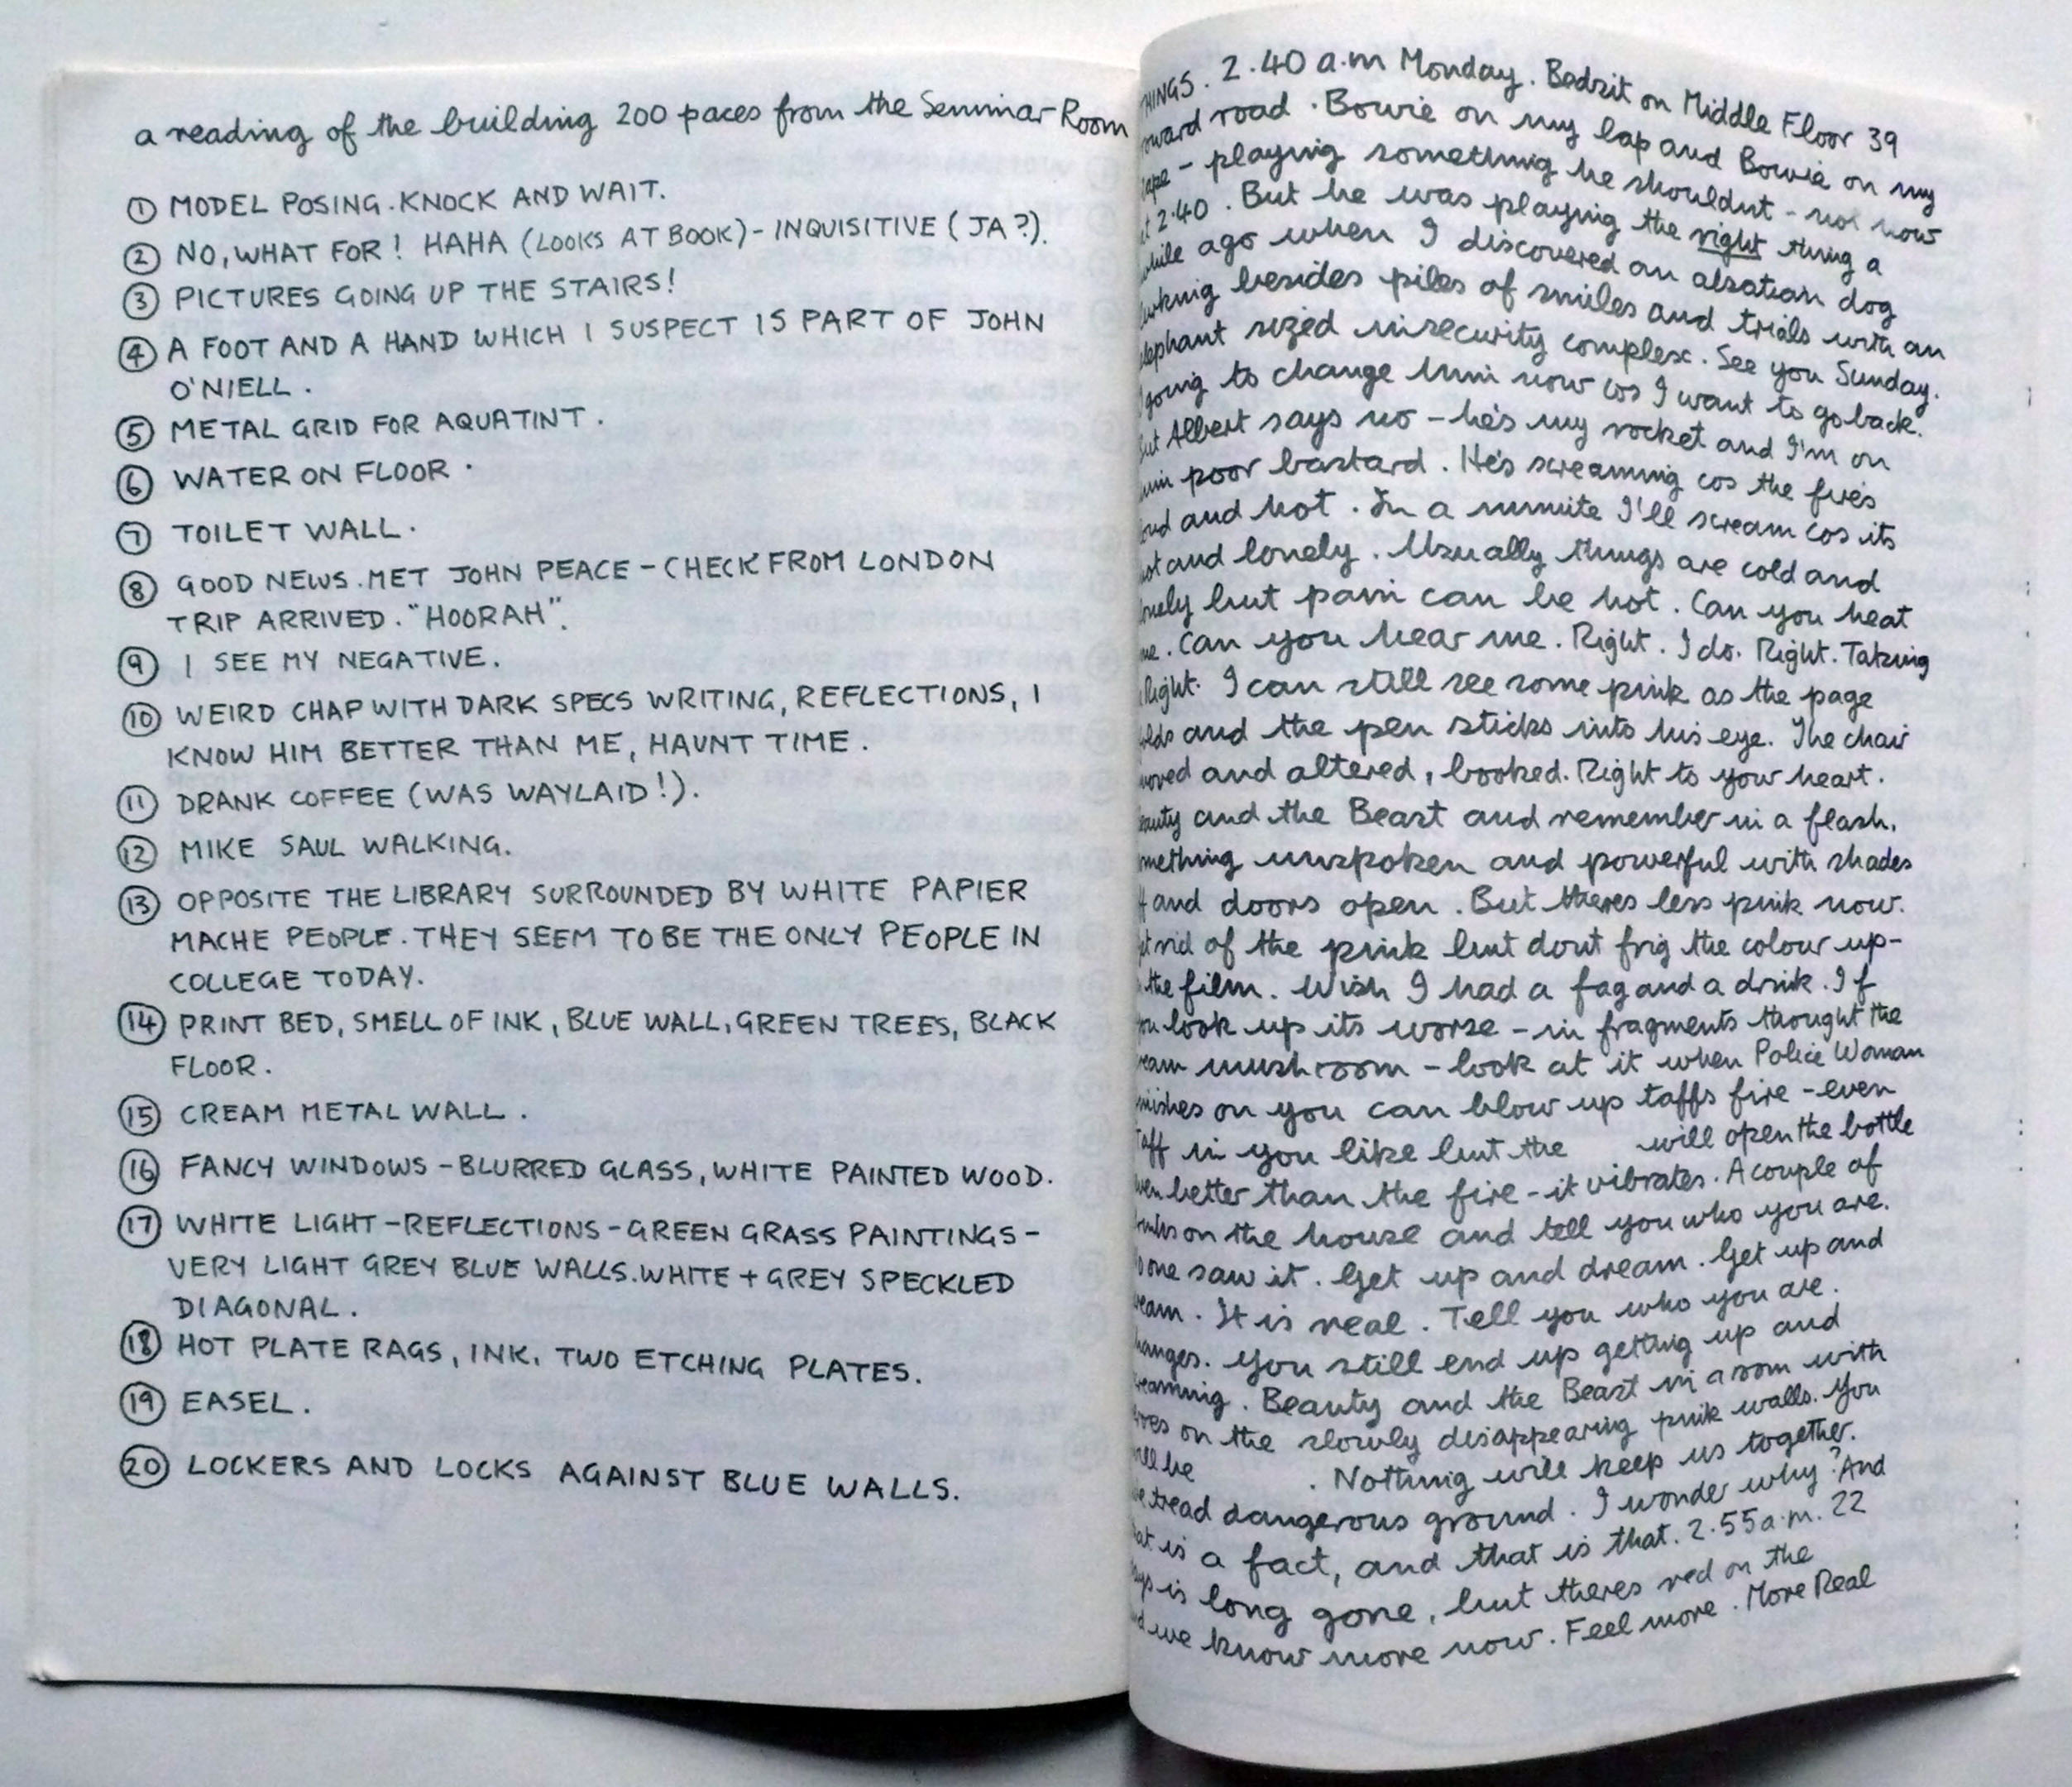 a reading of the building 200 paces from the Seminar Room
① MODEL POSING. KNOCK AND WAIT.
② NO, WHAT FOR! HAHA (LOOKS AT BOOK) - INQUISITIVE (JA?).
③ PICTURES GOING UP THE STAIRS!
④ A FOOT AND A HAND WHICH I SUSPECT IS PART OF JOHN
O'NIELL.
⑤ METAL GRID FOR AQUATINT.
⑥ WATER ON FLOOR.
⑦ TOILET WALL.
⑧ GOOD NEWS. MET JOHN PEACE - CHECK FROM LONDON
TRIP ARRIVED. "HOORAH".
⑨ I SEE MY NEGATIVE.
⑩ WEIRD CHAP WITH DARK SPECS WRITING, REFLECTIONS, I
KNOW HIM BETTER THAN ME, HAUNT TIME.
⑪ DRANK COFFEE (WAS WAYLAID!).
⑫ MIKE SAUL WALKING.
⑬ OPPOSITE THE LIBRARY SURROUNDED BY WHITE PAPIER
MACHE PEOPLE. THEY SEEM TO BE THE ONLY PEOPLE IN
COLLEGE TODAY.
⑭ PRINT BED, SMELL OF INK, BLUE WALL, GREEN TREES, BLACK
FLOOR.
⑮ CREAM METAL WALL.
⑯ FANCY WINDOWS - BLURRED GLASS, WHITE PAINTED WOOD.
⑰ WHITE LIGHT - REFLECTIONS - GREEN GRASS PAINTINGS -
VERY LIGHT GREY BLUE WALLS. WHITE + GREY SPECKLED
DIAGONAL.
⑱ HOT PLATE RAGS, INK. TWO ETCHING PLATES.
⑲ EASEL.
⑳ LOCKERS AND LOCKS AGAINST BLUE WALLS.
HINGS. 2.40 a.m Monday. Bedsit on Middle Floor 39
oward road. Bowie on my lap and Bowie on my
ape - playing something he shouldnt - not now
at 2.40. But he was playing the right thing a
while ago when I discovered an alsatian dog
lurking besides piles of smiles and trials with an
lephant sized insecurity complex. See you Sunday.
going to change him now cos I want to go back.
but Albert says no - he's my rocket and I'm on
him poor bastard. He's screaming cos the fire's
oud and hot. In a minute I'll scream cos its
hot and lonely. Usually things are cold and
onely but pain can be hot. Can you heat
me. Can you hear me. Right. I do. Right. Taking
Right. I can still see some pink as the page
olds and the pen sticks into his eye. The chair
moved and altered, booked. Right to your heart.
eauty and the Beast and remember in a flash.
omething unspoken and powerful with shades
ff and doors open. But theres less pink now.
et rid of the pink but dont frig the colour up-
the film. Wish I had a fag and a drink. If
you look up its worse - in fragments thought the
ream mushroom - look at it when Police Woman
inishes on you can blow up taffs fire - even
Taff in you like but the will open the bottle
ven better than the fire - it vibrates. A couple of
drinks on the house and tell you who you are.
No one saw it. Get up and dream. Get up and
ream. It is real. Tell you who you are.
hanges. You still end up getting up and
reaming. Beauty and the Beast in a room with
on the slowly disappearing pink walls. You
will be . Nothing will keep us together.
We tread dangerous ground. I wonder why? And
hat is a fact, and that is that. 2.55 a.m. 22
ays is long gone, but theres red on the
nd we know more now. Feel more. More Real